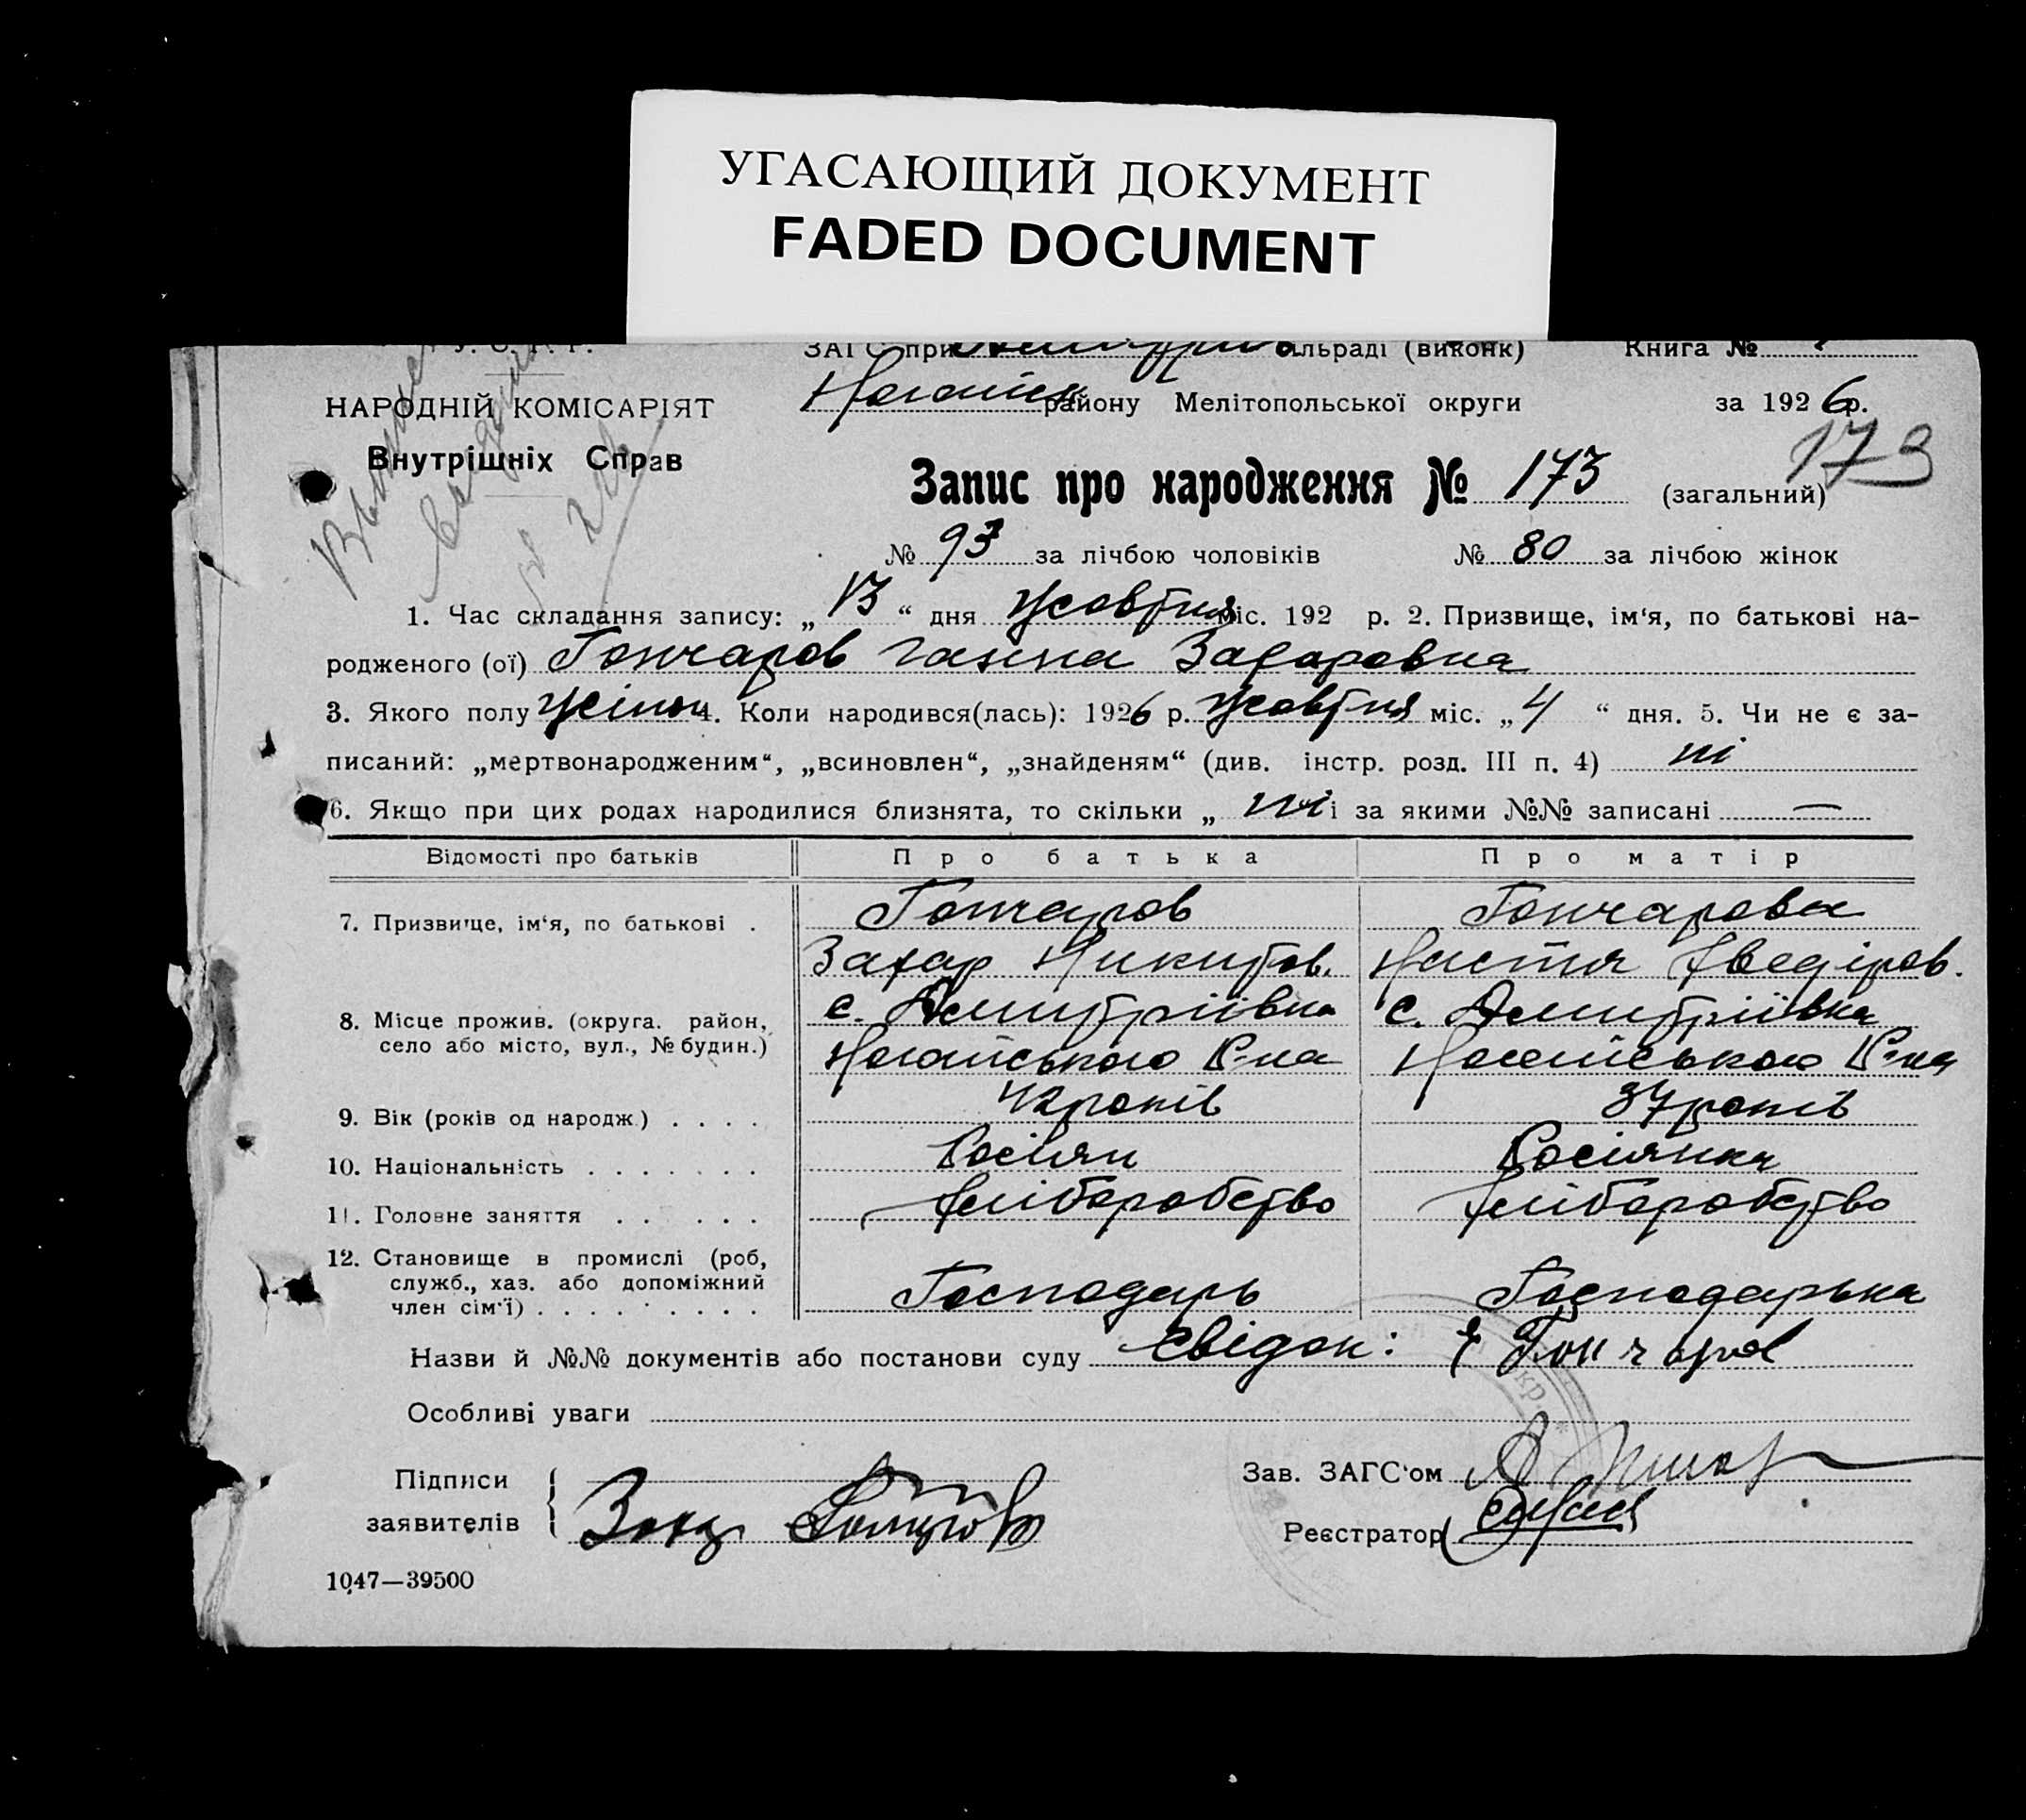 УГАСАЮЩИЙ ДОКУМЕНТ
FADED DOCUMENT
У. С. Р. Р.
ЗАГС при сільраді (виконк) Книга №
НАРОДНІЙ КОМІСАРІЯТ
Внутрішніх Справ
Ногайськ району Мелітопольської округи за 1926 р.
173
Запис про народження № 173 (загальний)
№ 93 за лічбою чоловіків № 80 за лічбою жінок
1. Час складання запису: „ 13 “ дня жовтня міс. 192 р. 2. Призвище, ім‘я, по батькові на-
родженого (ої) Гончаров Ганна Захаровна
3. Якого полу жіноч 4. Коли народився(лась): 1926 р. жовтня міс. „ 4 “ дня. 5. Чи не є за-
писаний: „мертвонародженим“, „всиновлен“, „знайденям“ (див. інстр. розд. III п. 4) ні
6. Якщо при цих родах народилися близнята, то скільки „ ні і за якими №№ записані —
Відомості про батьків Про батька Про матір
7. Призвище, ім‘я, по батькові . Гончаров Гончарова
Захар Никитов. Настя Хведіров.
8. Місце прожив. (округа. район, с. Дмитріївка с. Дмитріївка
село або місто, вул., № будин.) Ногайського Р-на Ногайського Р-на
9. Вік (років од народж.) . . . . 42 років 37 років
10. Національність . . . . . . . Росіян Росіянка
11. Головне заняття . . . . . Хліборобство Хліборобство
12. Становище в промислі (роб,
служб., хаз. або допоміжний
член сім‘ї) . . . . . . . . . . Господарь Господарька
Назви й №№ документів або постанови суду Свідок: Гончаров
Особливі уваги
Підписи
заявителів
Зав. ЗАГС‘ом
Реєстратор
1047—39500